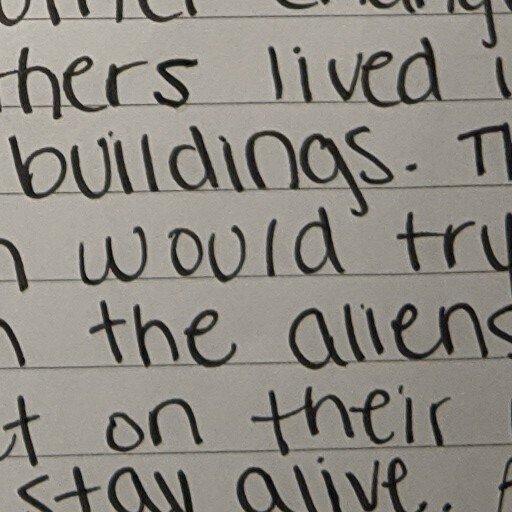 hers lived i
buildings. Th
would try
the aliens
t on their
stay alive.